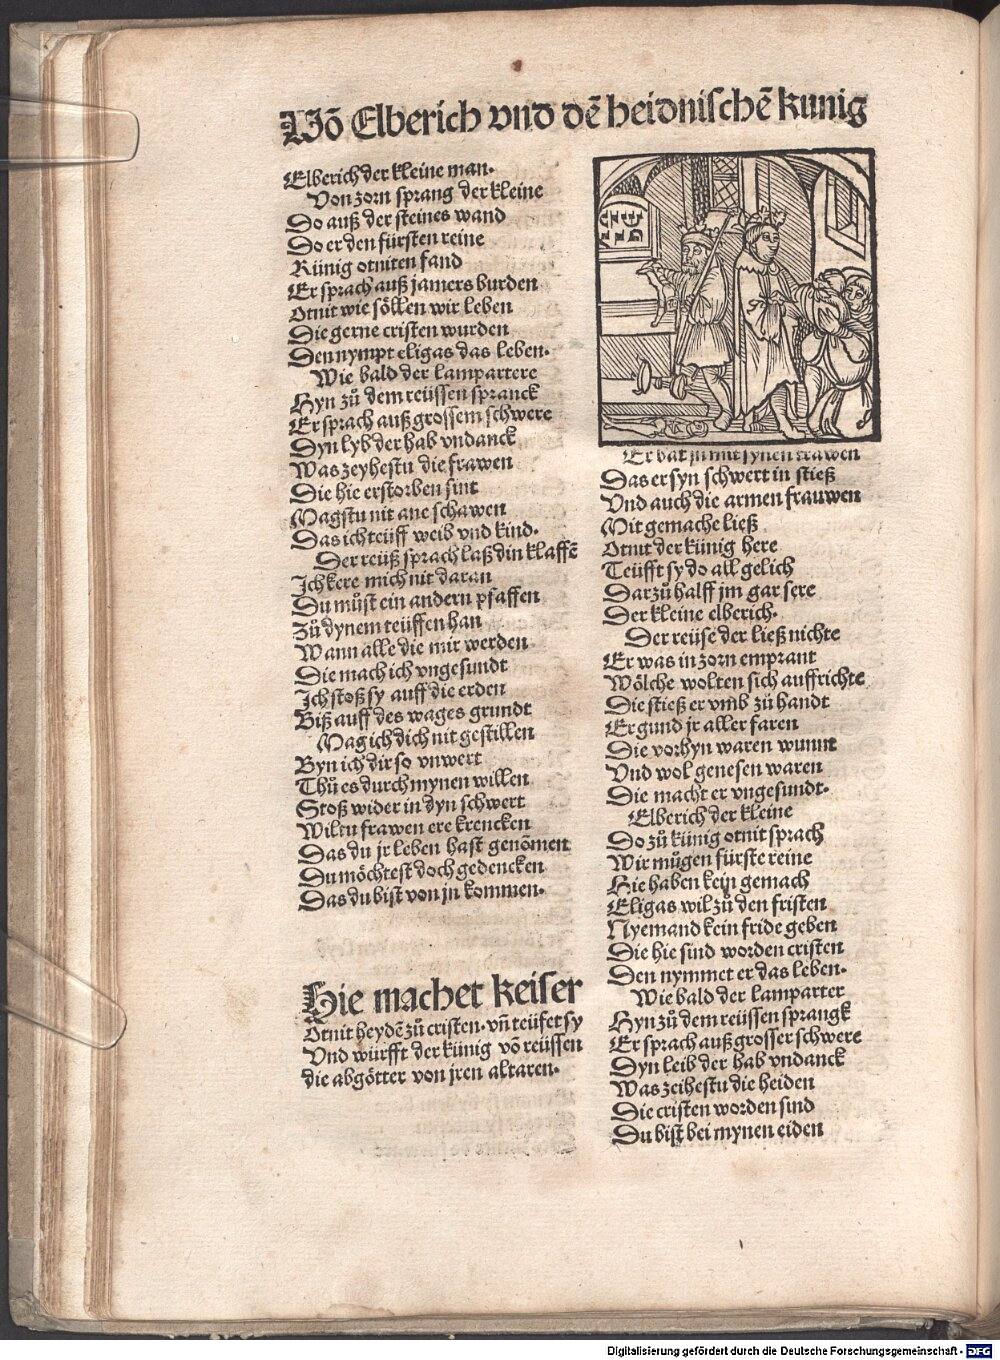 Vō Elberich vnd dē heidnischē kunig
Elberich der kleine man.
Von zorn sprang der kleine
Do auß der steines wand
Do er den fürsten reine
Künig otniten fand
Er sprach auß jamers burden
Otnit wie söllen wir leben
Die gerne cristen wurden
Den nympt eligas das leben.
Wie bald der lampartere
Hyn zů dem reüssen spranck
Er sprach auß grossem schwere
Dyn lyb der hab vndanck
Was zeyhestu die frawen
Die hie erstorben sint
Magstu nit ane schawen
Das ich teüff weib vnd kind.
Der reüß sprach laß din klaffē
Ich kere mich nit daran
Du můst ein andern pfaffen
Zů dynem teüffen han
Wann alle die mir werden
Die mach ich vngesundt
Ich stoß sy auff die erden
Biß auff des wages grundt
Mag ich dich nit gestillen
Byn ich dir so vnwert
Thů es durch mynen willen
Stoß wider in dyn schwert
Wiltu frawen ere krencken
Das du jr leben hast genōmen
Du möchtest doch gedencken
Das du bist von jn kommen.
Hie machet keiser
Otnit heydē zů cristen. vn̄ teüfet sy
Vnd würfft der künig vō reüssen
die abgötter von jren altaren.
Er bat jn mit synen trawen
Das er syn schwert in stieß
Vnd auch die armen frauwen
Mit gemache ließ
Otnit der künig here
Teüfft sy do all gelich
Darzů halff jm gar sere
Der kleine elberich.
Der reüse der ließ nichte
Er was in zorn emprant
Wölche wolten sich auffrichte
Die stieß er vmb zů handt
Er gund jr aller faren
Die vorhyn waren wunnt
Vnd wol genesen waren
Die macht er vngesundt.
Elberich der kleine
Do zů künig otnit sprach
Wir mügen fürste reine
Hie haben kein gemach
Eligas wil zů den fristen
Nyemand kein fride geben
Die hie sind worden cristen
Den nymmet er das leben.
Wie bald der lamparter
Hyn zů dem reüssen sprangk
Er sprach auß grosser schwere
Dyn leib der hab vndanck
Was zeihestu die heiden
Die cristen worden sind
Du bist bei mynen eiden
Digitalisierung gefördert durch die Deutsche Forschungsgemeinschaft - DFG